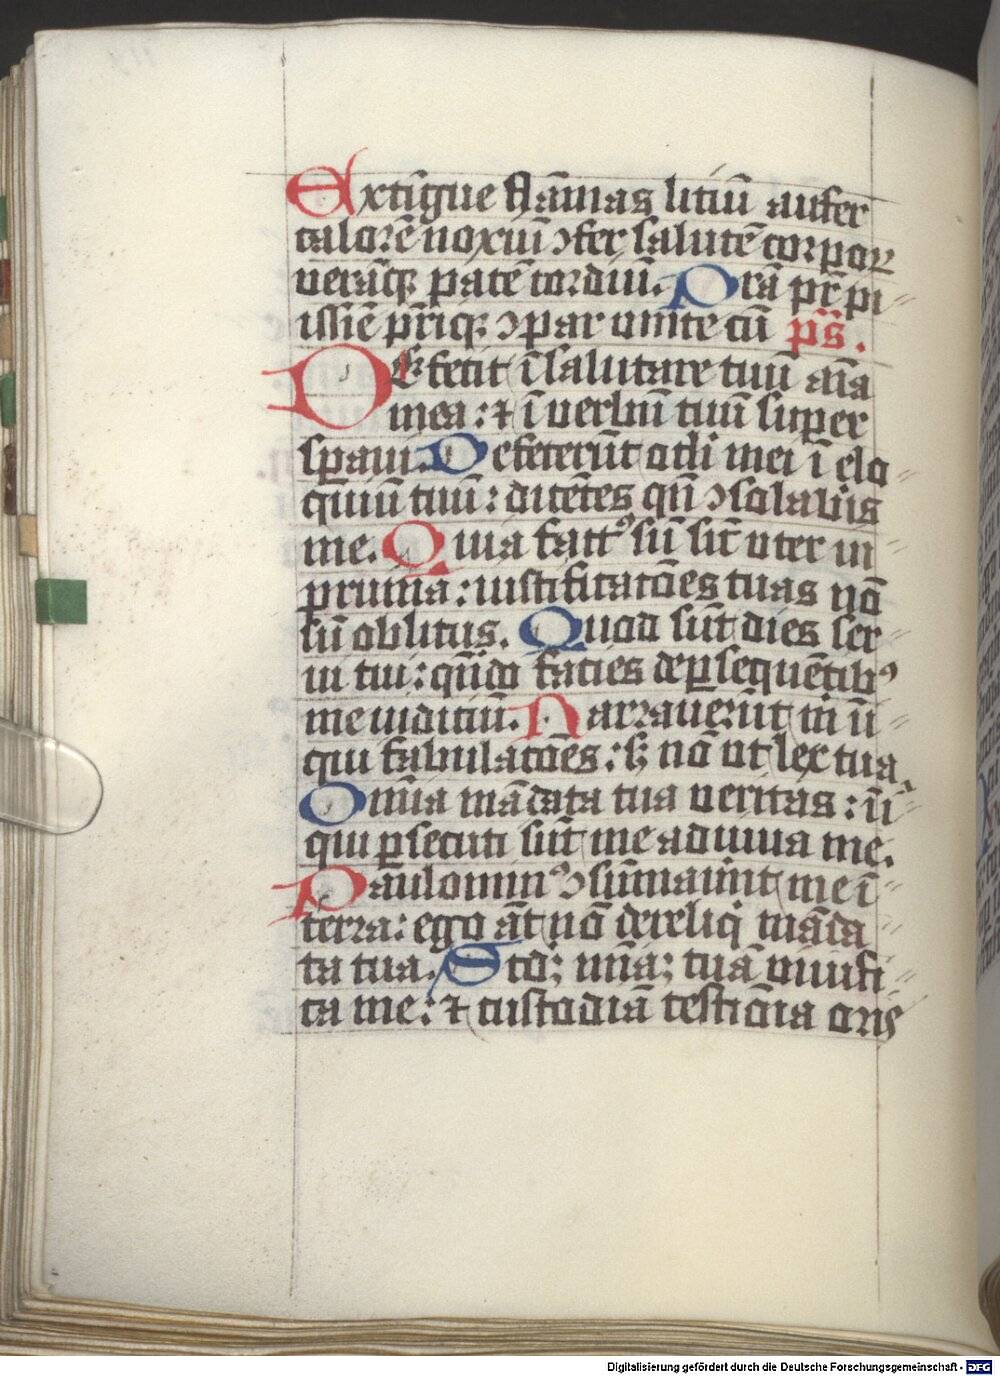 Extīgue flāmas litiū aufer
calorē noxiū ↄfer salutē corpoꝝ
verāqꝫ pacē cordiū. Prā pr̄ pi
issīe pr̄iqꝫ ↄpar unice cū ps̄.
Defecit ī salutare tuū aīa
mea: ⁊ ī verbū tuū super
sꝑaui. Defecerūt oc̄li mei ī elo
quiū tuū: dicētes qn̄ ↄsolab̄is
me. Quia fact᷒ sū sic̄ uter in
pruina: iustificatōes tuas nō
sū oblitus. Quod sūt dies ser
ui tui: qn̄do facies de ꝑsequētib᷒
me iudiciū. Narrauerūt m̄ ī
qui fabulatōes: sꝫ nō ut lex tua
Omīa mādata tua veritas: ī
qui ꝑsecuti sūt me adiuua me.
Paulomin᷒ ↄsūmauīnt me ī
terra: ego āt nō dereliqi māda
ta tua. Scdꝫ mīaꝫ tuā uiuifi
ca me: ⁊ custodiā testiōia oris
Digitalisierung gefördert durch die Deutsche Forschungsgemeinschaft - DFG